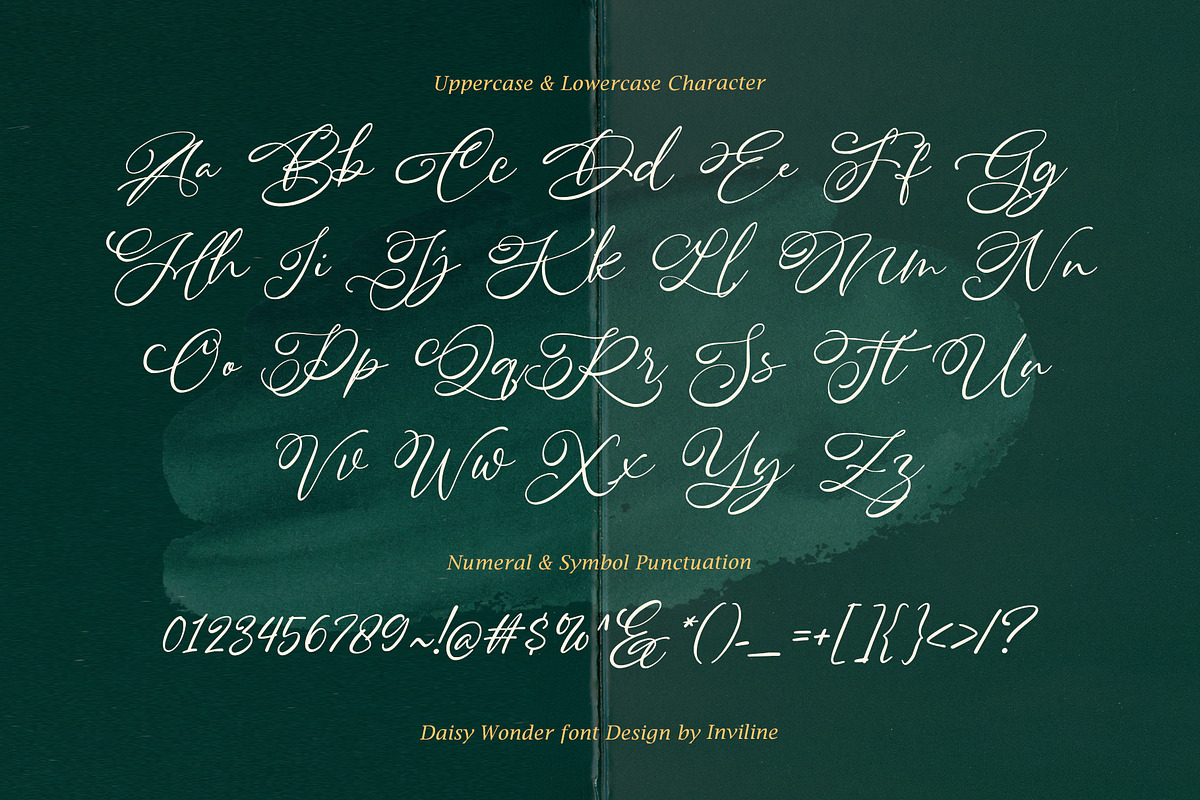 Uppercase & Lowercase Character
Aa Bb Cc Dd Ee Ff Gg
Hh Ii Jj Kk Ll Mm Nn
Oo Pp Qq Rr Ss Tt Uu
Vv Ww Xx Yy Zz
Numeral & Symbol Punctuation
0123456789~!@#$%^&*()-_=+[]{}<>/?
Daisy Wonder font Design by Inviline